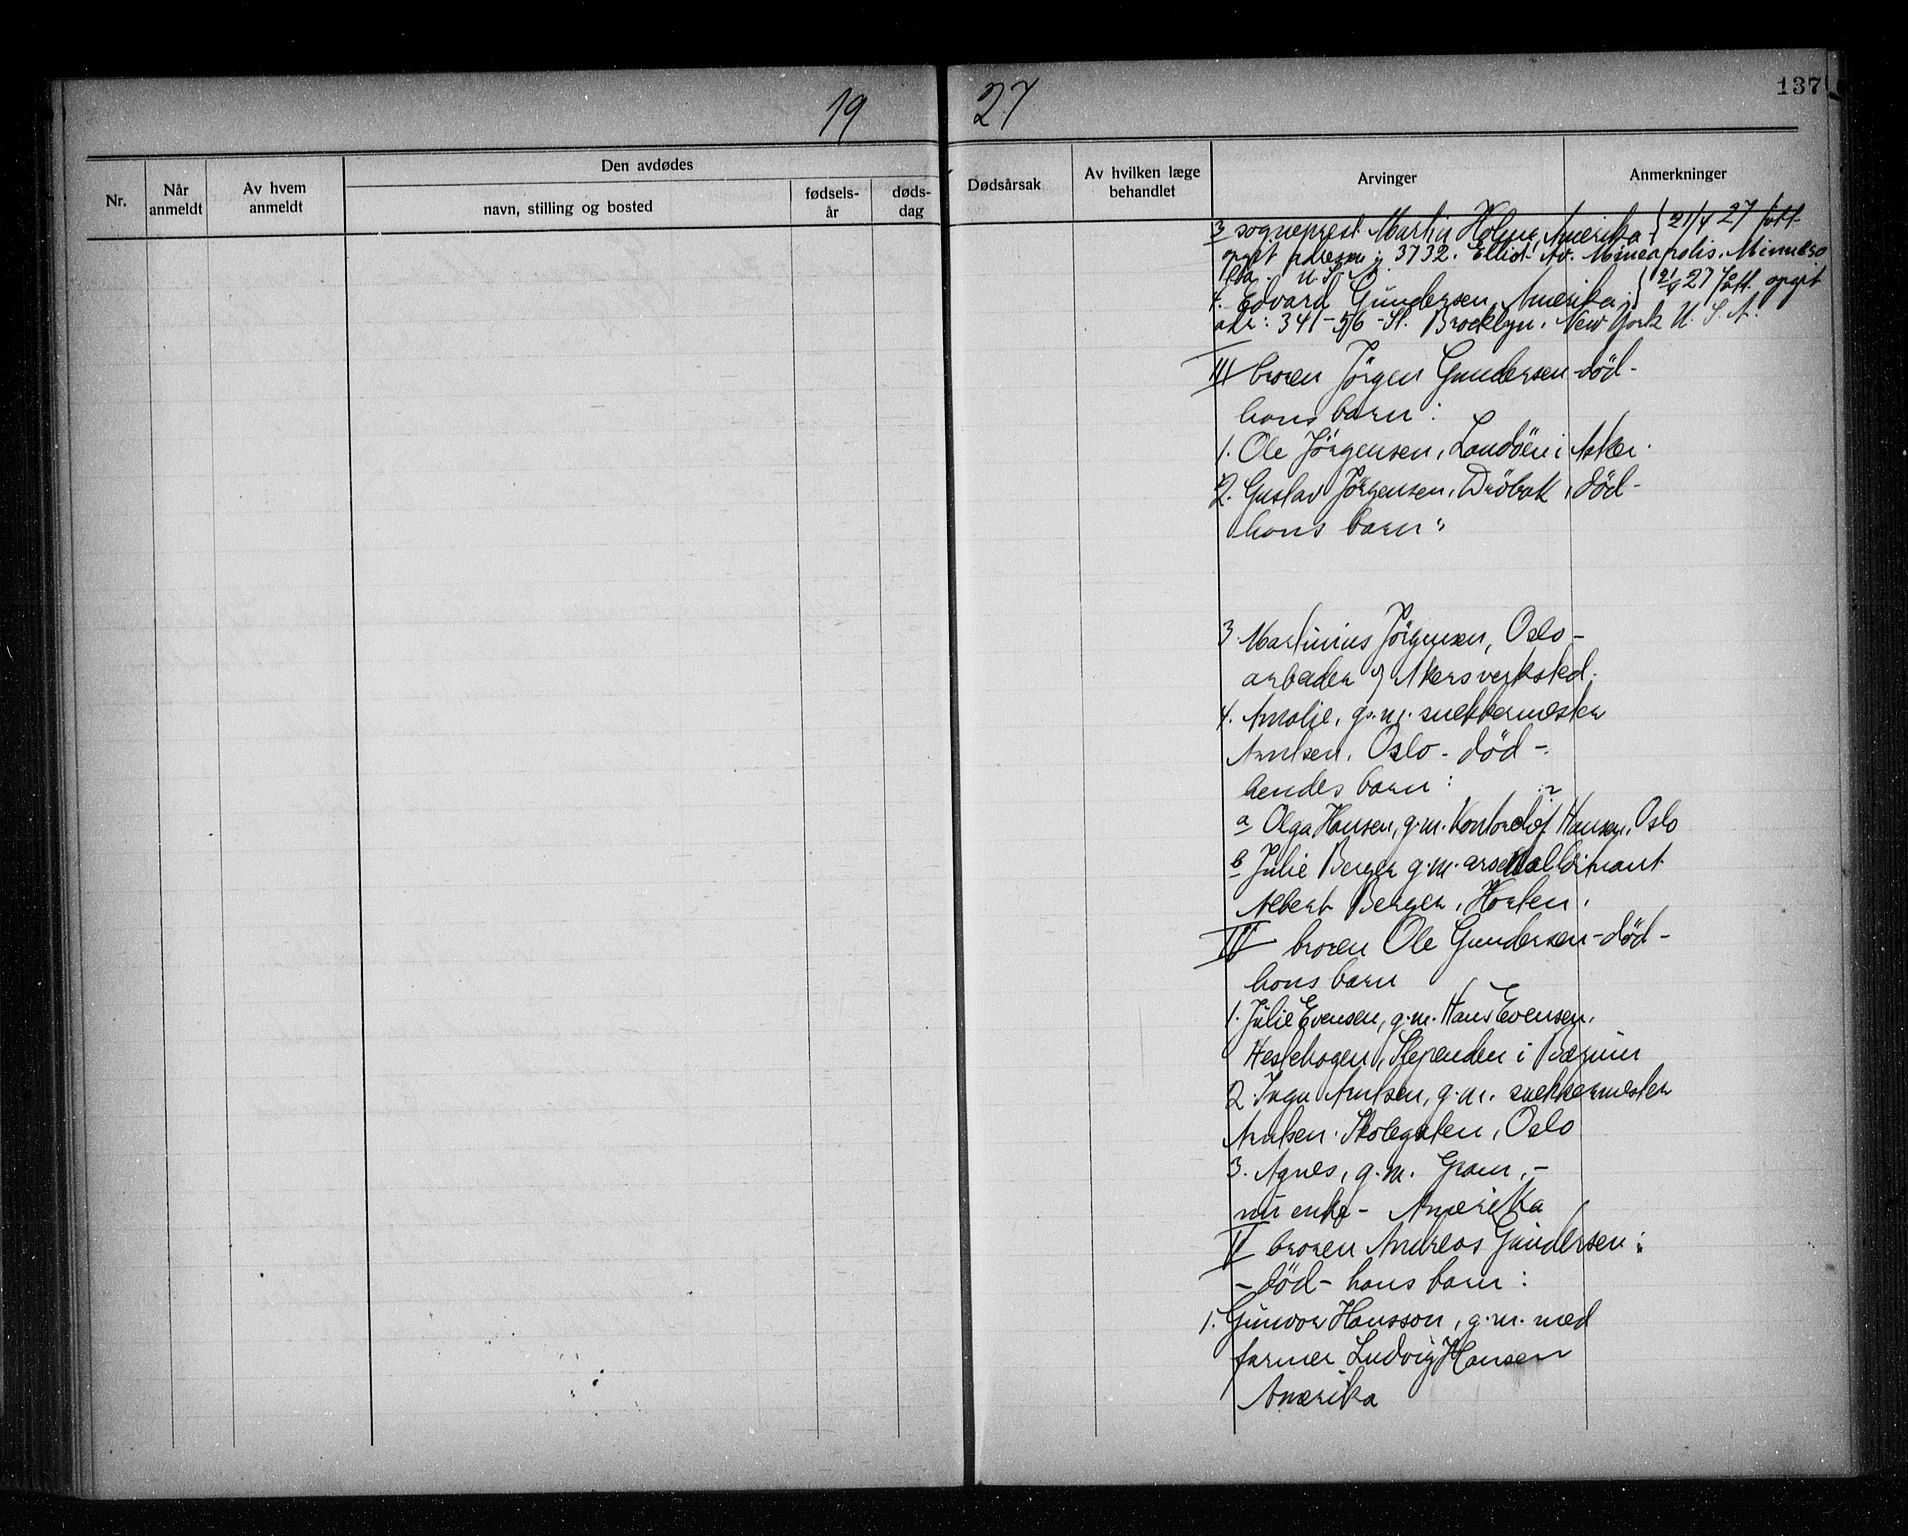 137
19 27
Nr.
Når anmeldt
Av hvem anmeldt
Den avdødes
navn, stilling og bosted
fødsels-år
døds-dag
Dødsårsak
Av hvilken læge behandlet
Arvinger
Anmerkninger
3 sogneprest Martin Holm, Amerika } 21/4 27 fått
opgit adressen: 3732. Elliot Av. Mineapolis. Minneso
ta. U.S.A.
4. Edvard Gundersen, Amerika; } 21/4 27 fått opgit
adr: 341-56-St. Brooklyn. New York U.S.A.
III broren Jörgen Gundersen - död -
hans barn:
1. Ole Jörgensen, Landöen i Asker.
2. Gustav Jörgensen, Dröbak, död -
hans barn:
3. Martinius Jörgensen, Oslo -
arbeider v/ Akers verksted.
4. Amalie, g.m. snekkermester
Arntsen, Oslo - död -.
hendes barn:
a Olga Hansen, g.m. Kontorchef Hansen, Oslo
b Julie Berger g.m. arsenalformant
Albert Berger, Horten.
IV broren Ole Gundersen - död -
hans barn
1. Julie Evensen, g.m. Hans Evensen,
Hestehagen, Slependen i Bærum
2. Inga Arntsen, g.m. snekkermester
Arntsen. Skolegaten, Oslo
3. Agnes, g.m. Gram, -
nu enke - Amerika
V broren Andreas Gundersen:
- död - hans barn:
1. Gunvor Hansson, g.m. med
farmer Ludvig Hansen
Amerika